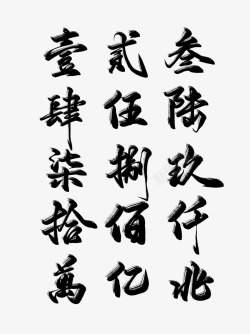 壹 贰 叁
肆 伍 陆
柒 捌 玖
拾 佰 仟
萬 亿 兆